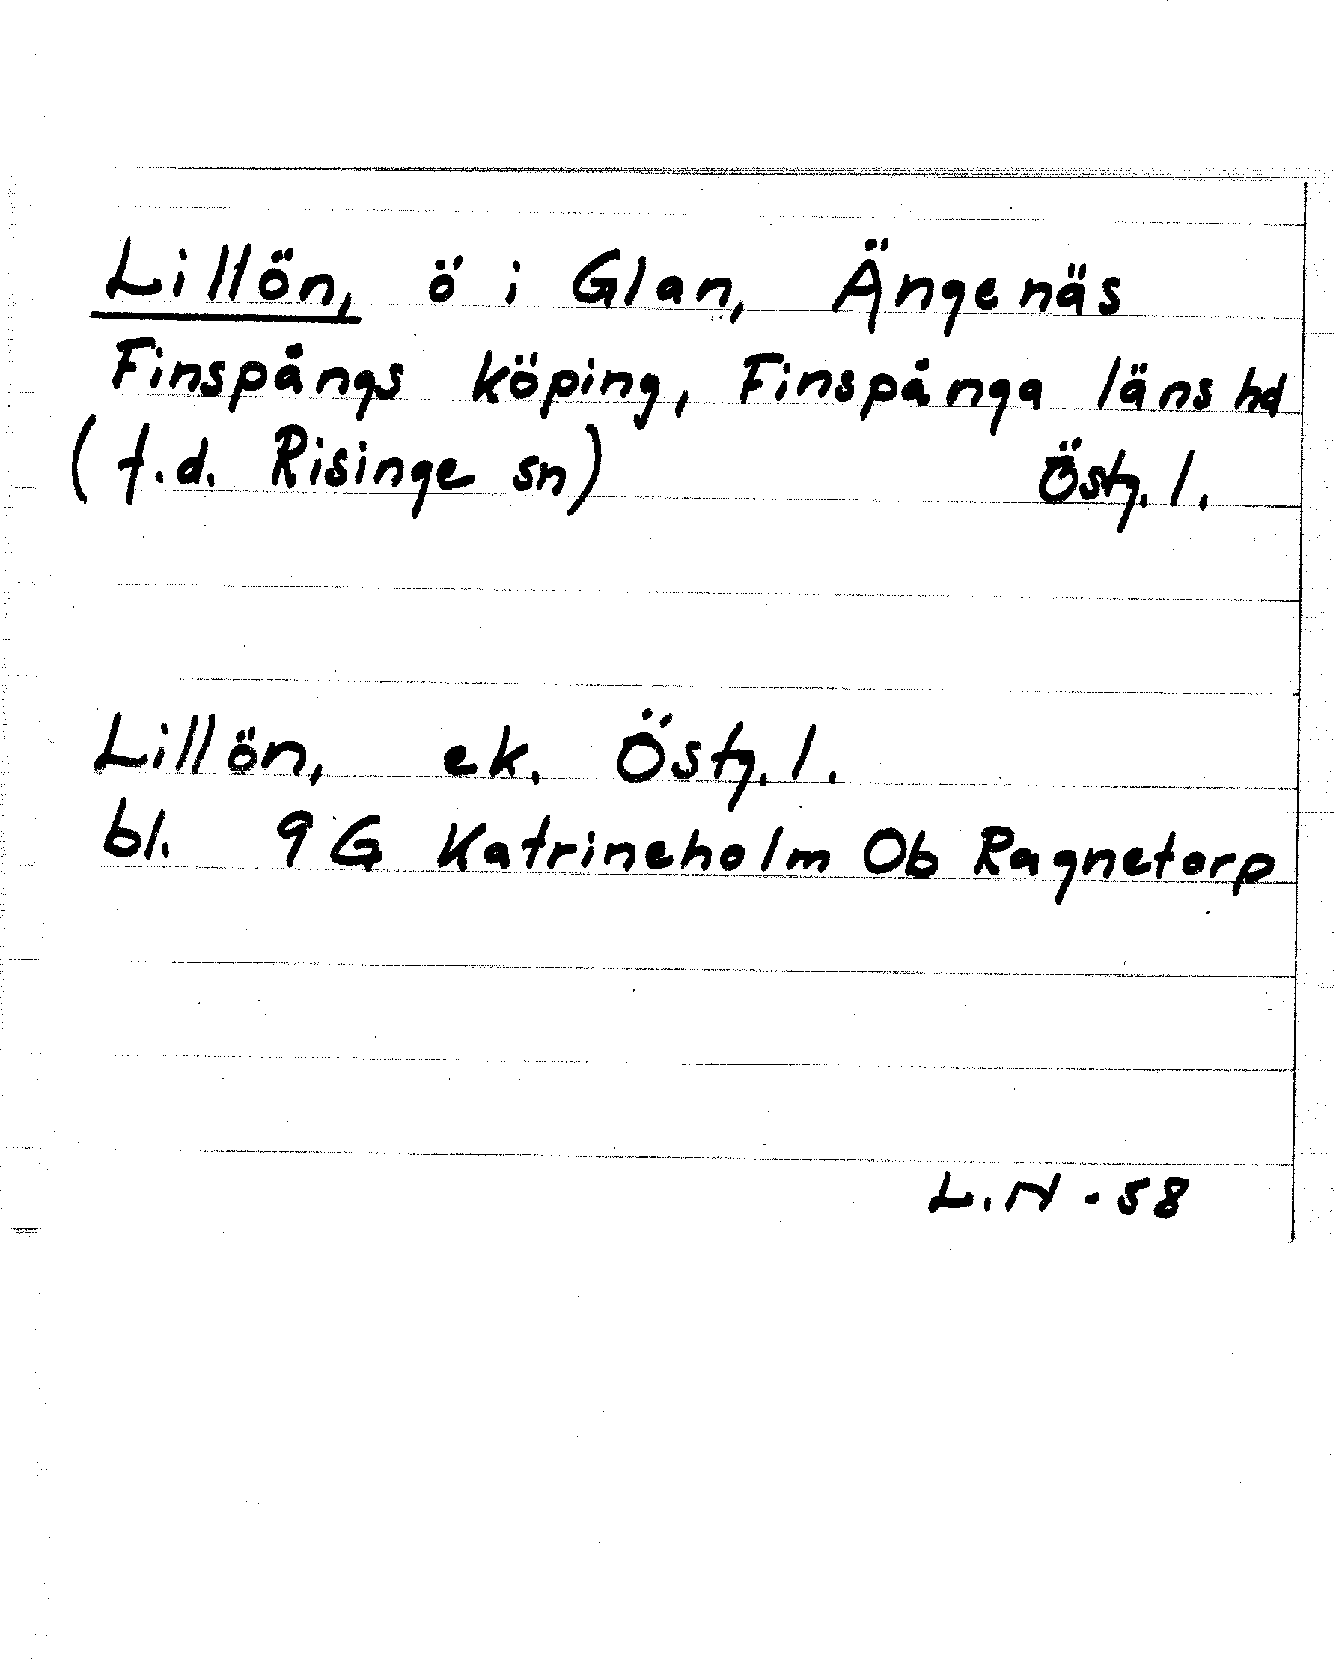 Lillön, ö i Glan, Ängenäs
Finspångs köping, Finspånga läns hd
(f.d. Risinge sn) Östg. l.
Lillön, ek. Östg. l.
bl. 9 G Katrineholm Ob Ragnetorp
L.N -58